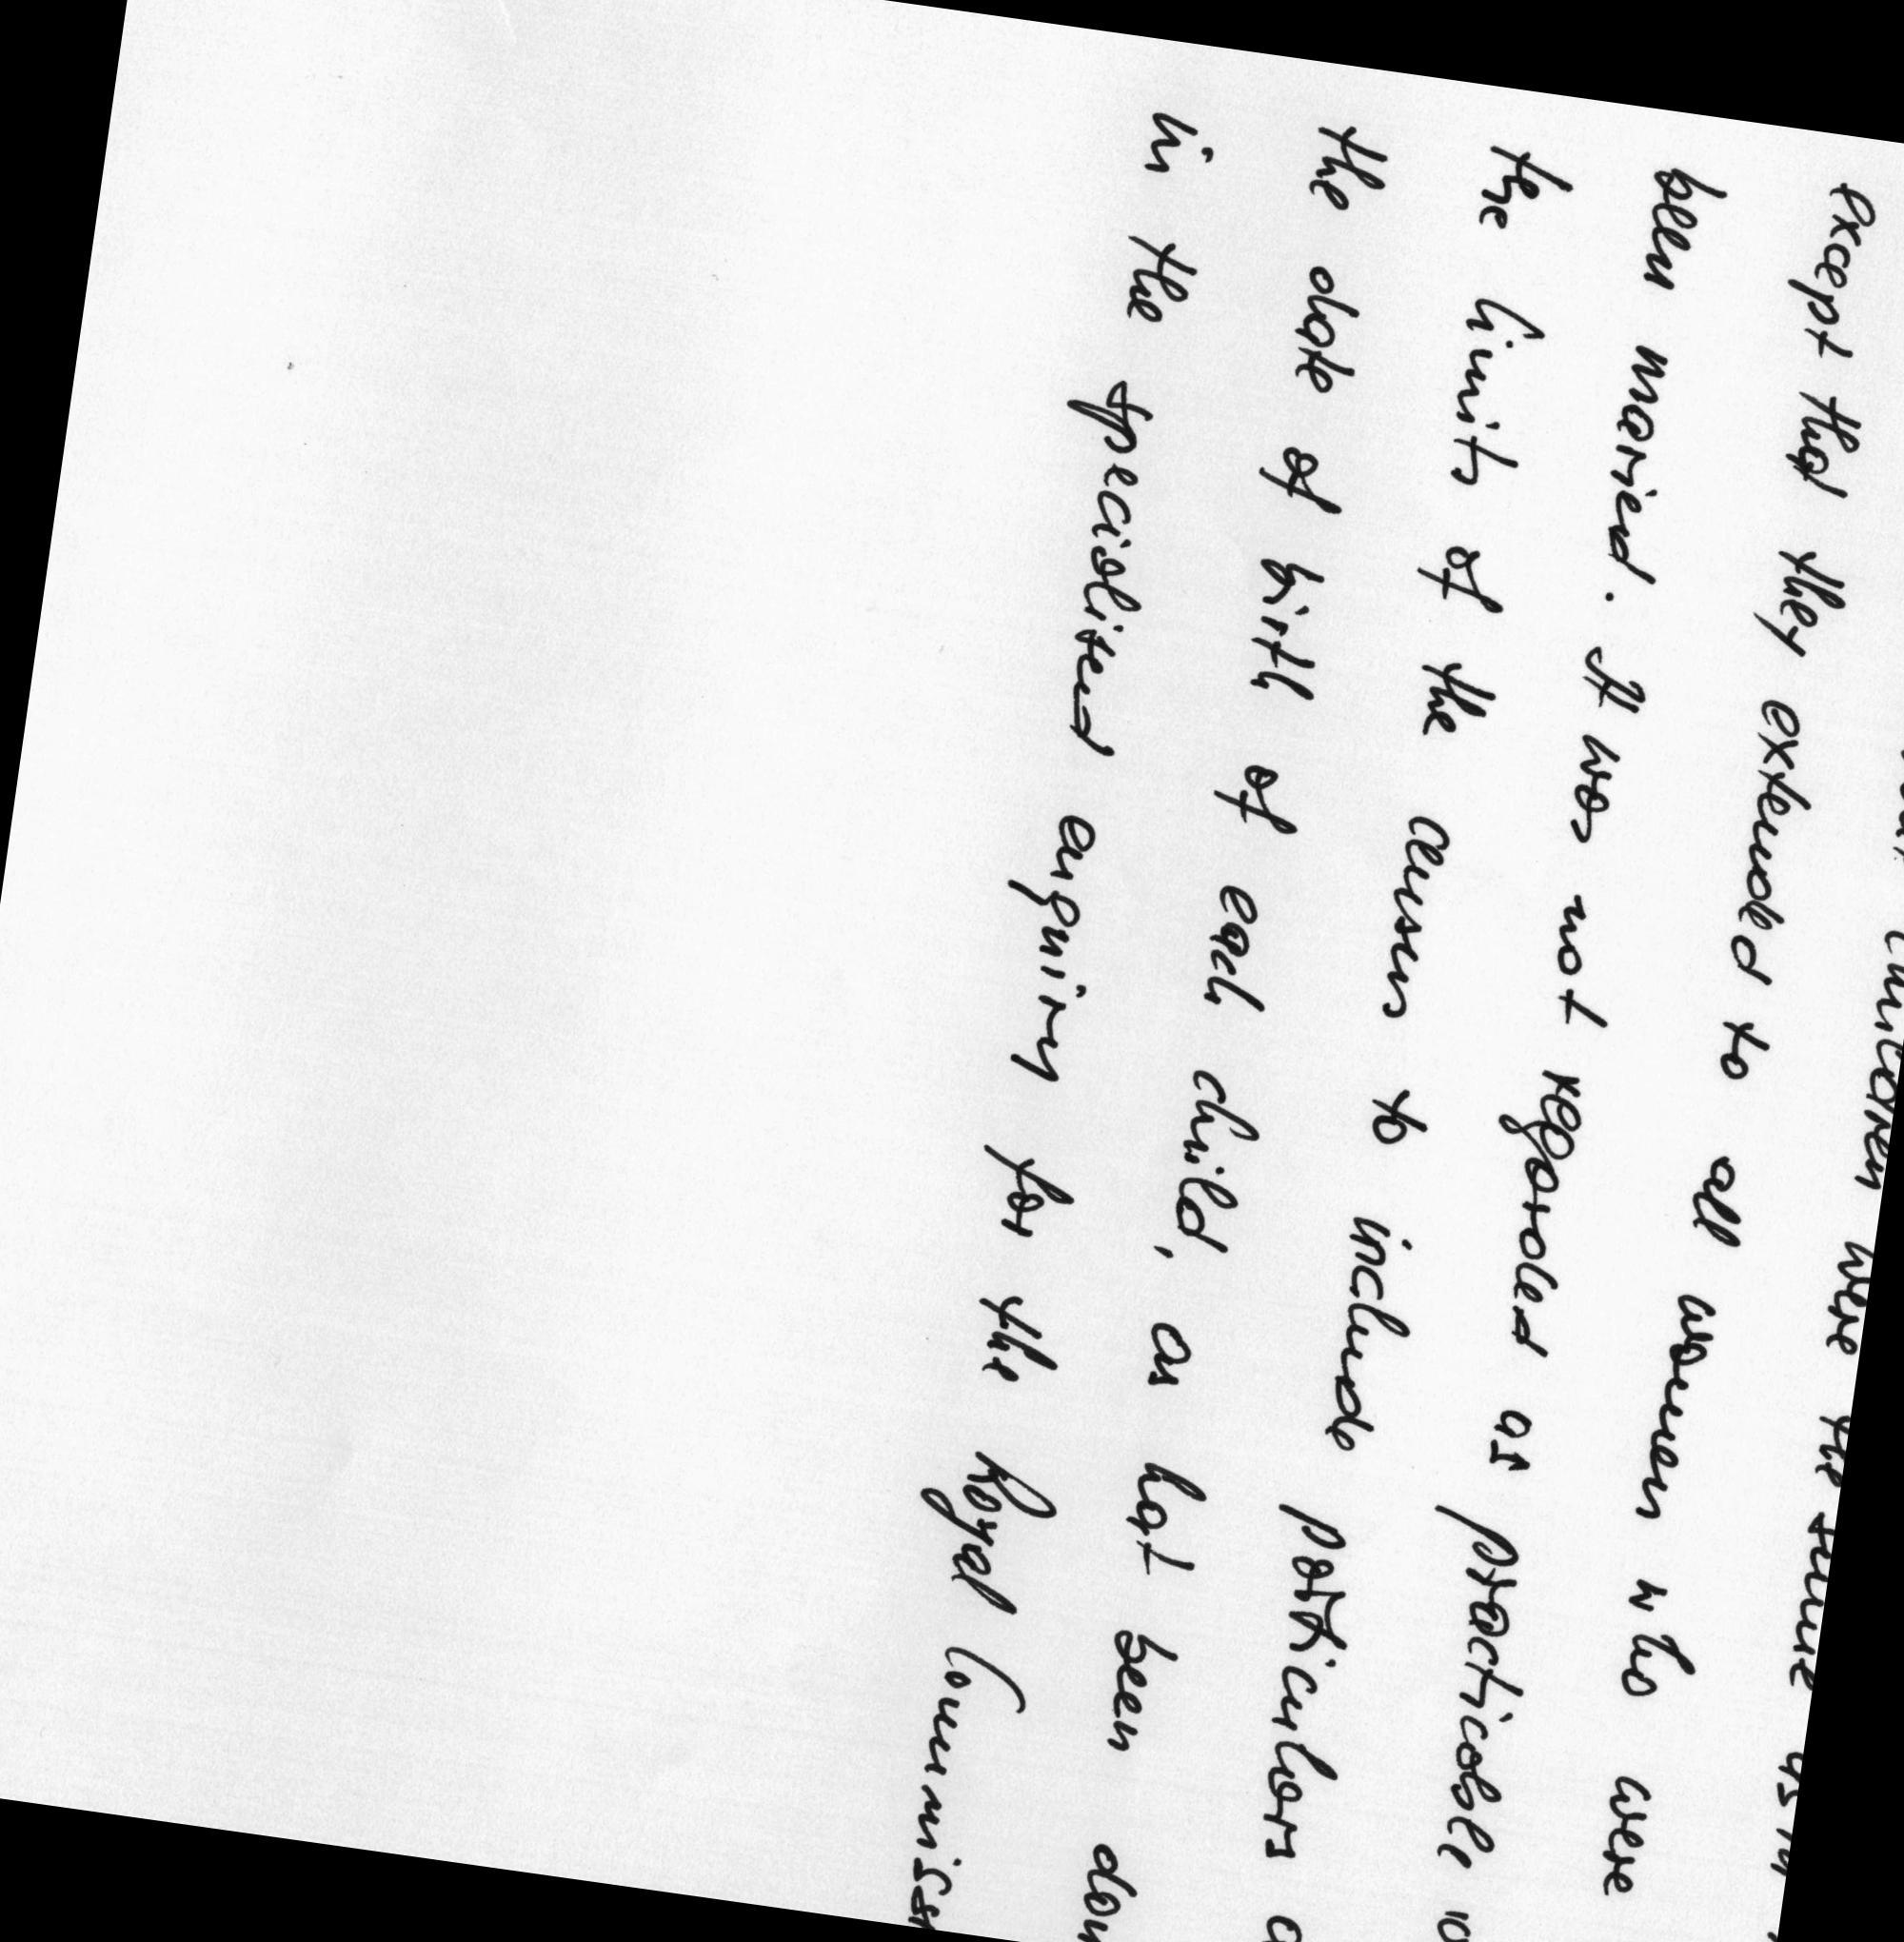 children were the same as in
except that they extended to all women who were
been married. It was not regarded as practicable
the limits of the census to include particulars
the date of birth of each child, as had been
in the specialised enquiry for the Royal